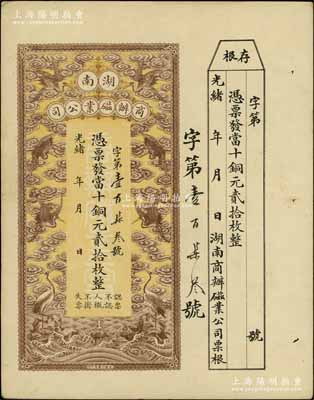 上海陽明拍賣
南湖
司公業磁辦商
字第壹百柒叁號
憑票發當十銅元貳拾枚整
光緒 年 月 日
認票不認人
失票不掛
字第壹百柒叁號
根存
字第 號
憑票發當十銅元貳拾枚整
光緒 年 月 日湖南商辦磁業公司票根
上海陽明拍賣